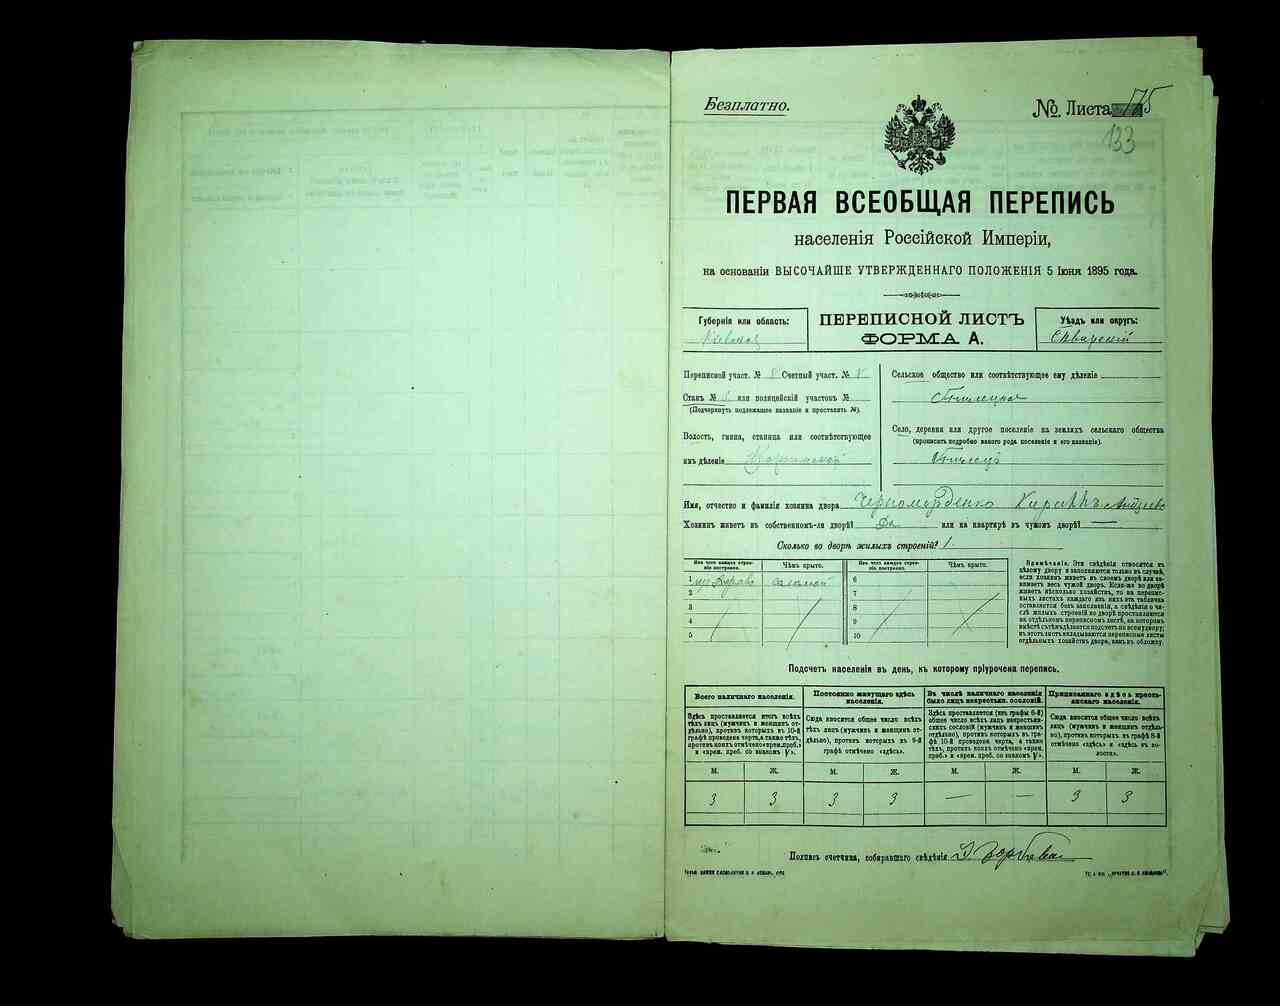 Безплатно.
№ Листа 175
133
ПЕРВАЯ ВСЕОБЩАЯ ПЕРЕПИСЬ
населенія Россійской Имперіи,
на основаніи ВЫСОЧАЙШЕ УТВЕРЖДЕННАГО ПОЛОЖЕНІЯ 5 Іюня 1895 года.
Губернія или область:
Кіевская
ПЕРЕПИСНОЙ ЛИСТЪ
ФОРМА А.
Уѣздъ или округъ:
Сквирскій
Переписной участ. № 8 Счетный участ. № 8
Станъ № или полицейскій участокъ №
(Подчеркнуть подлежащее названіе и проставить №).
Волость, гмина, станица или соотвѣтствующее
имъ дѣленіе
Сельское общество или соотвѣтствующее ему дѣленіе
Село, деревня или другое поселеніе на земляхъ сельскаго общества
(прописать подробно какого рода поселеніе и его названіе).
Имя, отчество и фамилія хозяина двора Черномурденко
Хозяинъ живетъ въ собственномъ-ли дворѣ? Да или на квартирѣ въ чужомъ дворѣ? —
Сколько во дворѣ жилыхъ строеній? 1.
Изъ чего каждое строеніе построено.
Чѣмъ крыто.
Изъ чего каждое строеніе построено.
Чѣмъ крыто.
1 изъ дерева соломой
2
3
4
5
6
7
8
9
10
Примѣчаніе. Эти свѣдѣнія относятся къ
цѣлому двору и заполняются только въ случаѣ,
если хозяинъ живетъ въ своемъ дворѣ или на-
нимаетъ весь чужой дворъ. Если-же во дворѣ
живетъ нѣсколько хозяйствъ, то на перепис-
ныхъ листахъ каждаго изъ нихъ эта табличка
оставляется безъ заполненія, а свѣдѣнія о чи-
слѣ жилыхъ строеній во дворѣ проставляются
на отдѣльномъ переписномъ листѣ, на которомъ
вмѣстѣ съ тѣмъ дѣлается подсчетъ по всему двору;
въ этотъ листъ вкладываются переписные листы
отдѣльныхъ хозяйствъ двора, какъ въ обложку.
Подсчетъ населенія въ день, къ которому пріурочена перепись.
Всего наличнаго населенія.
Здѣсь проставляется итогъ всѣхъ
тѣхъ лицъ (мужчинъ и женщинъ от-
дѣльно), противъ которыхъ въ 10-й
графѣ проведена черта, а также тѣхъ,
противъ коихъ отмѣчено «врем. преб.»
и «врем. преб. со знакомъ V».
Постоянно живущаго здѣсь
населенія.
Сюда вносится общее число всѣхъ
лицъ (мужчинъ и женщинъ от-
дѣльно), противъ которыхъ въ 9-й
графѣ отмѣчено «здѣсь».
Въ числѣ наличнаго населенія
было лицъ некрестьян. сословій.
Здѣсь проставляется (изъ графы 6-й)
общее число всѣхъ лицъ некрестьян-
скихъ сословій (мужчинъ и женщинъ
отдѣльно), противъ которыхъ въ гра-
фѣ 10-й проведена черта, а также
тѣхъ, противъ коихъ отмѣчено «врем.
преб.» и «врем. преб. со знакомъ V».
Приписаннаго здѣсь кресть-
янскаго населенія.
Сюда вносится общее число всѣхъ
лицъ (мужчинъ и женщинъ отдѣль-
но), противъ которыхъ въ графѣ 8-й
отмѣчено «здѣсь» и «здѣсь въ во-
лости».
М. Ж. М. Ж. М. Ж. М. Ж.
3 3 3 3 — — 3 3
Подпись счетчика, собиравшаго свѣдѣнія